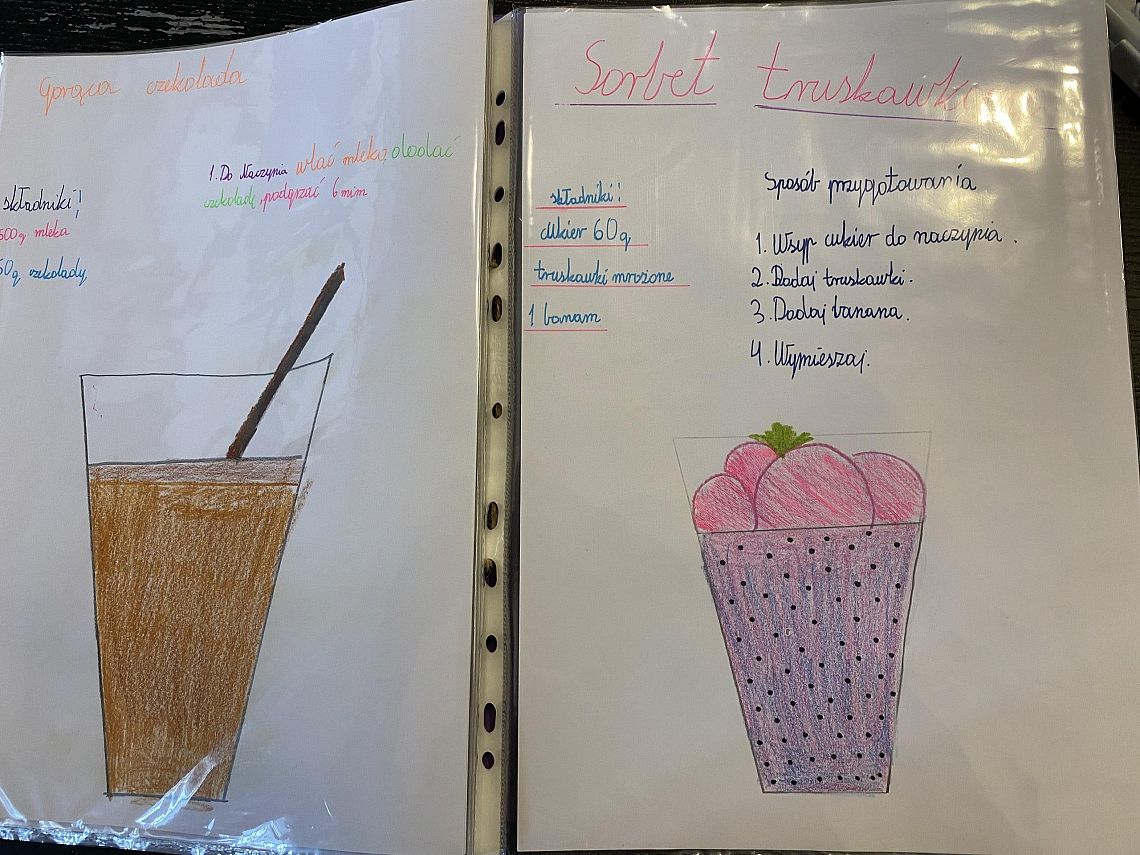 Gorąca czekolada
1. Do Naczynia wlać mleko, dodać
czekoladę, podgrzać 6 min
składniki!
500g mleka
50g czekolady,
Sorbet truskawk
składniki!
cukier 60g
truskawki mrożone
1 banam
Sposób przygotowania
1. Wsyp cukier do naczynia.
2. Dodaj truskawki.
3. Dodaj banana.
4. Wymieszaj.